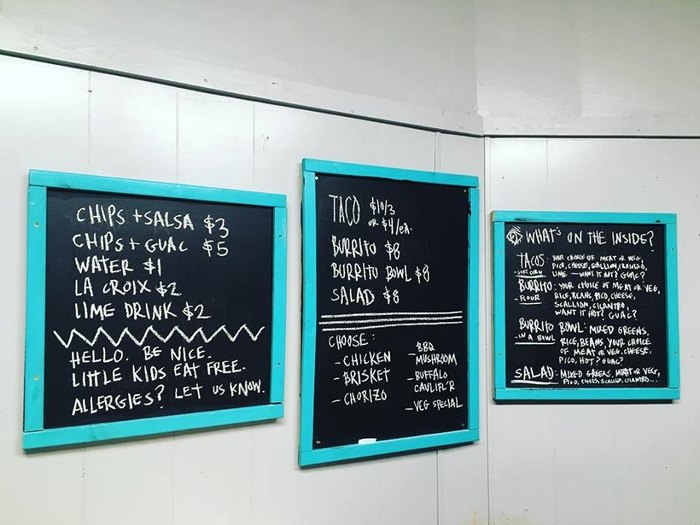 CHIPS + SALSA $3
CHIPS + GUAC $5
WATER $1
LA CROIX $2
LIME DRINK $2
HELLO. BE NICE.
LITTLE KIDS EAT FREE.
ALLERGIES? LET US KNOW.
TACO $10/3
OR $4/EA.
BURRITO $8
BURRITO BOWL $8
SALAD $8
CHOOSE:
- CHICKEN
- BRISKET
- CHORIZO
BBQ
- MUSHROOM
- BUFFALO
CAULIFL'R
- VEG SPECIAL
WHAT'S ON THE INSIDE?
TACOS: YOUR CHOICE OF MEAT OR VEG,
PICO, CHEESE, SCALLION, CILANTRO,
LIME - WANT IT HOT? GUAC?
BURRITO: YOUR CHOICE OF MEAT OR VEG,
- FLOUR RICE, BEANS, PICO, CHEESE,
SCALLION, CILANTRO.
WANT IT HOT? GUAC?
BURRITO BOWL: MIXED GREENS,
- IN A BOWL RICE, BEANS, YOUR CHOICE
OF MEAT OR VEG. CHEESE,
PICO, HOT? GUAC?
SALAD: MIXED GREENS, MEAT OR VEG,
PICO, CHEESE, SCALLION, CILANTRO...